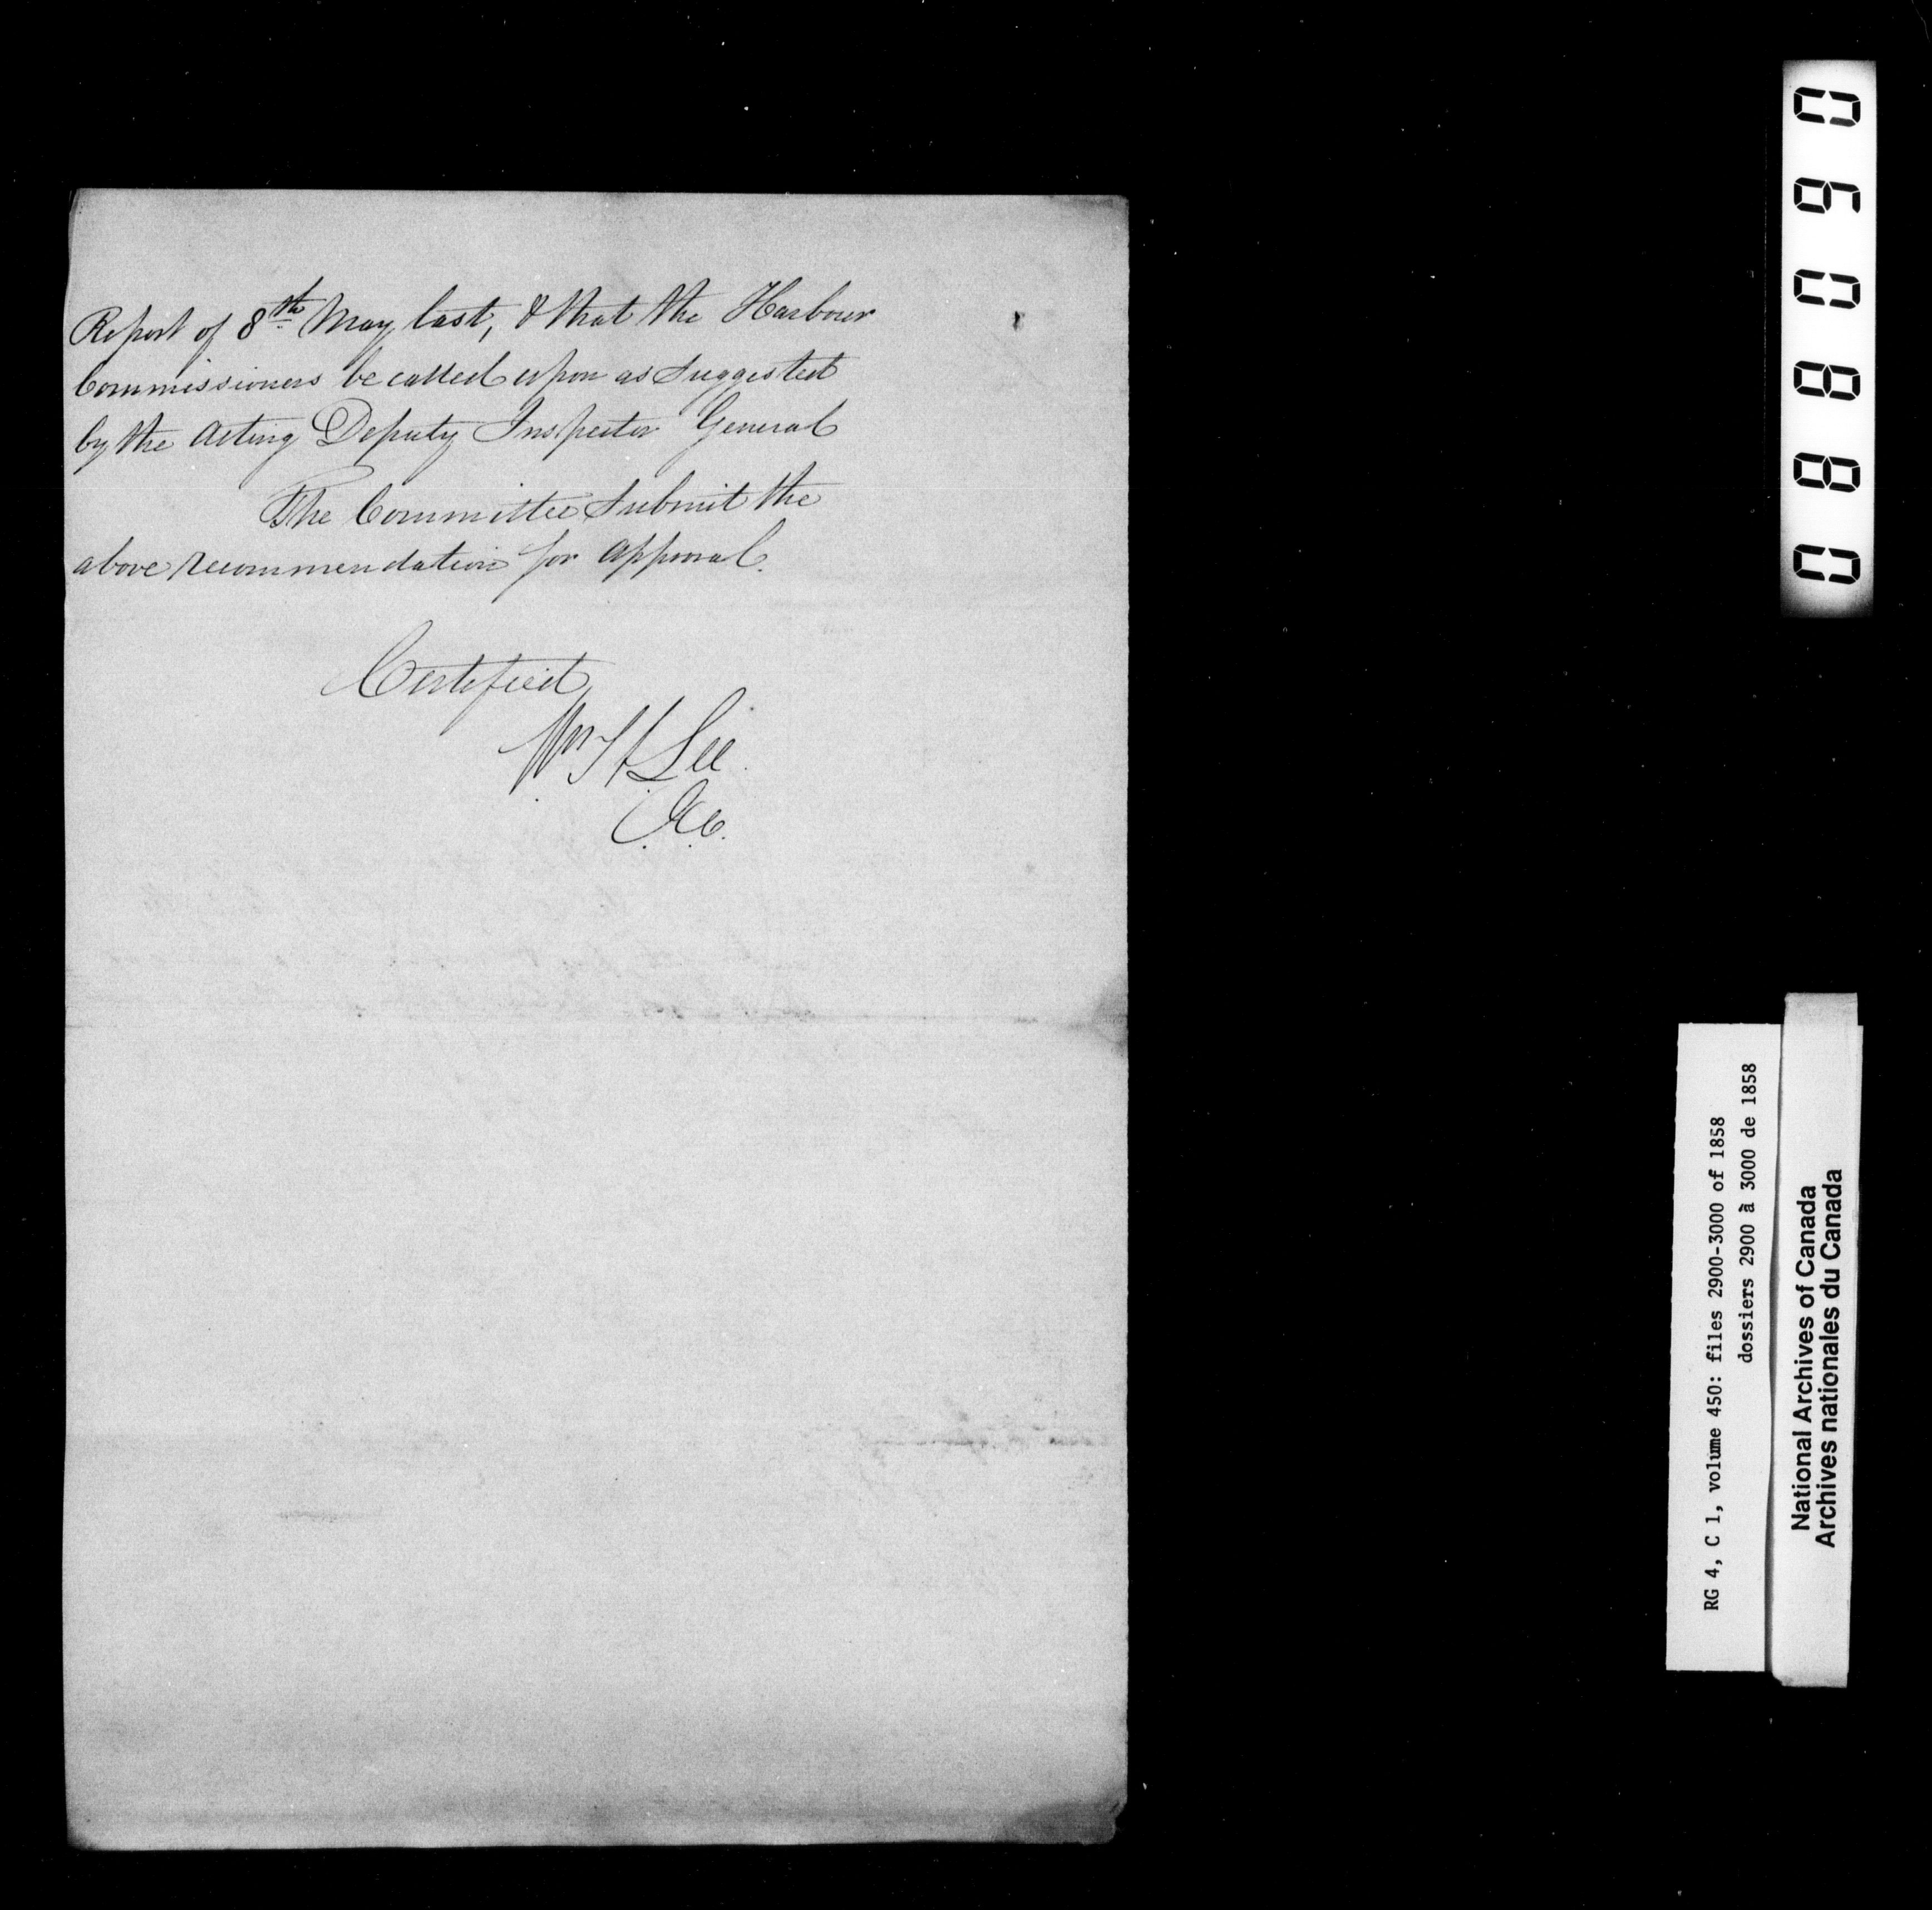 Report of 8th May last, & that the Harbour
Commissioners be called upon as Suggested
by the Acting Deputy Inspector General
The Committee Submit the
above recommendation for approval.
Certified
Wm H Lee
088090
RG 4, C 1, volume 450: files 2900-3000 of 1858
dossiers 2900 à 3000 de 1858
National Archives of Canada
Archives nationales du Canada